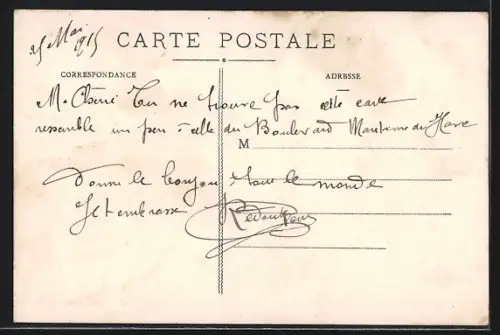 25 Mai
1915
CARTE POSTALE
CORRESPONDANCE
ADRESSE
M. Chérie Tu ne trouve pas cette carte
ressemble un peu à celle du Boulevard Maritime du Havre
M
Donne le bonjour tout le monde
Je t'embrasse